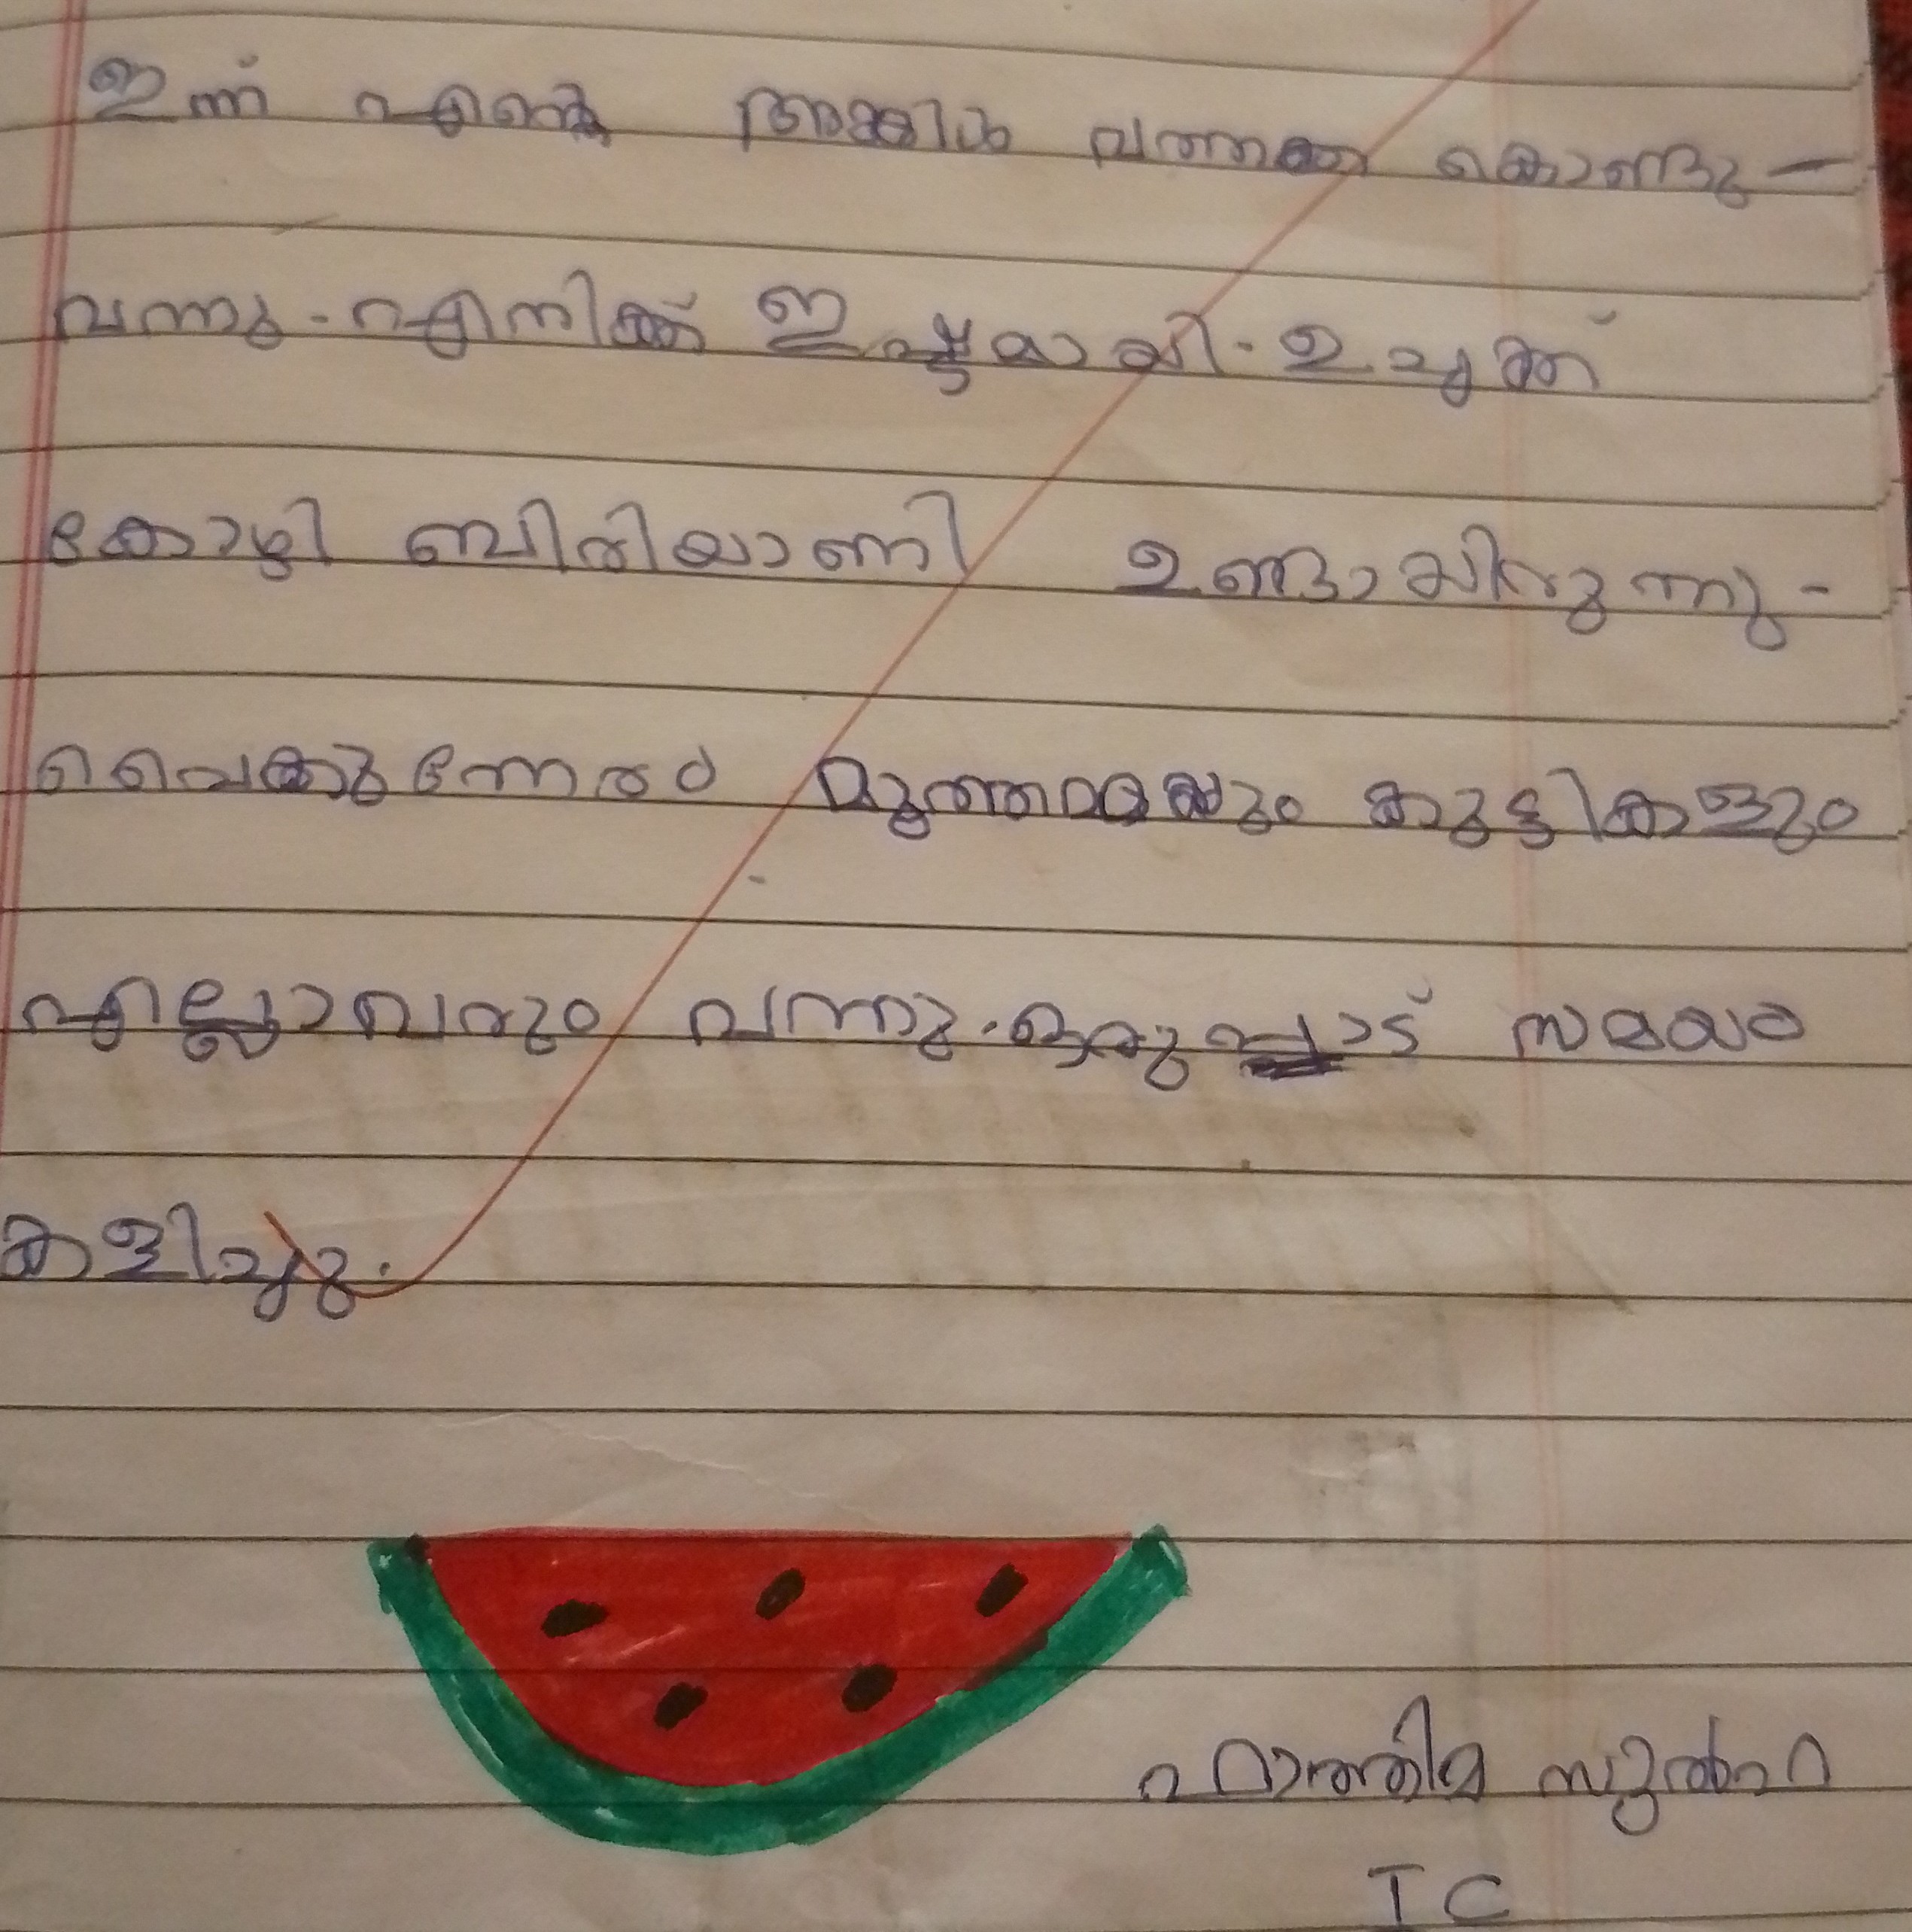 ഇന്ന് എന്റെ അങ്കിൾ വത്തക്ക കൊണ്ടു-
വന്നു. എനിക്ക് ഇഷ്ടമായി. ഉച്ചക്ക്
കോഴി ബിരിയാണി ഉണ്ടായിരുന്നു -
വൈകുന്നേരം മൂത്തമ്മയും കുട്ടികളും
എല്ലാവരും വന്നു. ഒരുപ്പാട് സമയം
കളിച്ചു.
ഫാത്തിമ സുൽഫ
I C